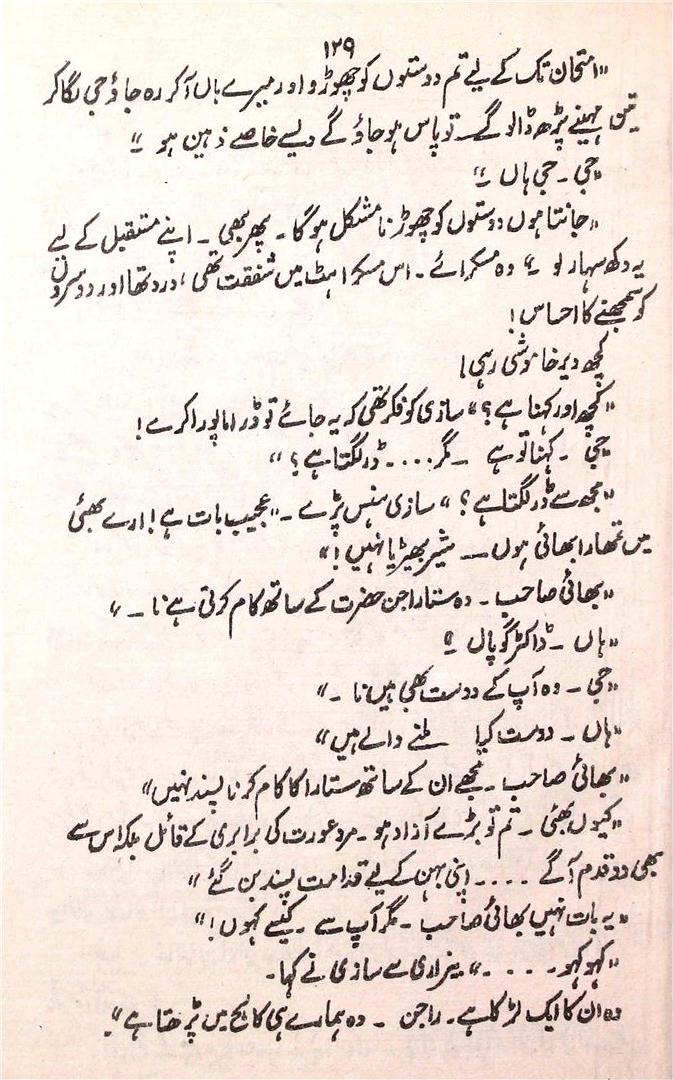 ۱۲۹
"امتحان تک کے لیے تم دوستوں کو چھوڑو اور میرے ہاں آ کر رہ جاؤ جی لگا کر
تین مہینے پڑھ ڈالو گے۔ تو پاس ہو جاؤ گے ویسے خاصے ذہین ہو ۔"
"جی ۔ جی ہاں ۔"
"جانتا ہوں دوستوں کو چھوڑنا مشکل ہو گا ۔ پھر بھی ۔ اپنے مستقبل کے لیے
یہ دکھ سہار لو ۔" وہ مسکرائے ۔ اس مسکراہٹ میں شفقت تھی ، درد تھا اور دوسروں
کو سمجھنے کا احساس!
کچھ دیر خاموشی رہی!
"کچھ اور کہنا ہے؟" سازی کو فکر تھی کہ یہ جائے تو ڈراما پورا کرے!
"جی ۔ کہنا تو ہے ۔ مگر.... ڈر لگتا ہے؟"
"مجھ سے ڈر لگتا ہے؟" سازی ہنس پڑے ۔ "عجیب بات ہے! ارے بھئی
میں تمھارا بھائی ہوں ــ شیر بھیڑیا نہیں!"
"بھائی صاحب ۔ وہ ستارا جن حضرت کے ساتھ کام کرتی ہے نا ۔"
"ہاں ۔ ڈاکٹر گوپال ؟
"جی ۔ وہ آپ کے دوست بھی ہیں نا ۔"
"ہاں ۔ دوست کیا ملنے والے ہیں"
"بھائی صاحب ۔ مجھے ان کے ساتھ ستارا کا کام کرنا پسند نہیں"
"کیوں بھئی ۔ تم تو بڑے آزاد ہو ۔ مرد عورت کی برابری کے قائل بلکہ اس سے
بھی دو قدم آگے .... اپنی بہن کے لیے قدامت پسند بن گئے"
"یہ بات نہیں بھائی صاحب ۔ مگر آپ سے ۔ کیسے کہوں!"
"کہو کہو ۔ ...." بیزاری سے سازی نے کہا ۔
وہ ان کا ایک لڑکا ہے ۔ راجن ۔ وہ ہمارے ہی کالج میں پڑھتا ہے"۔